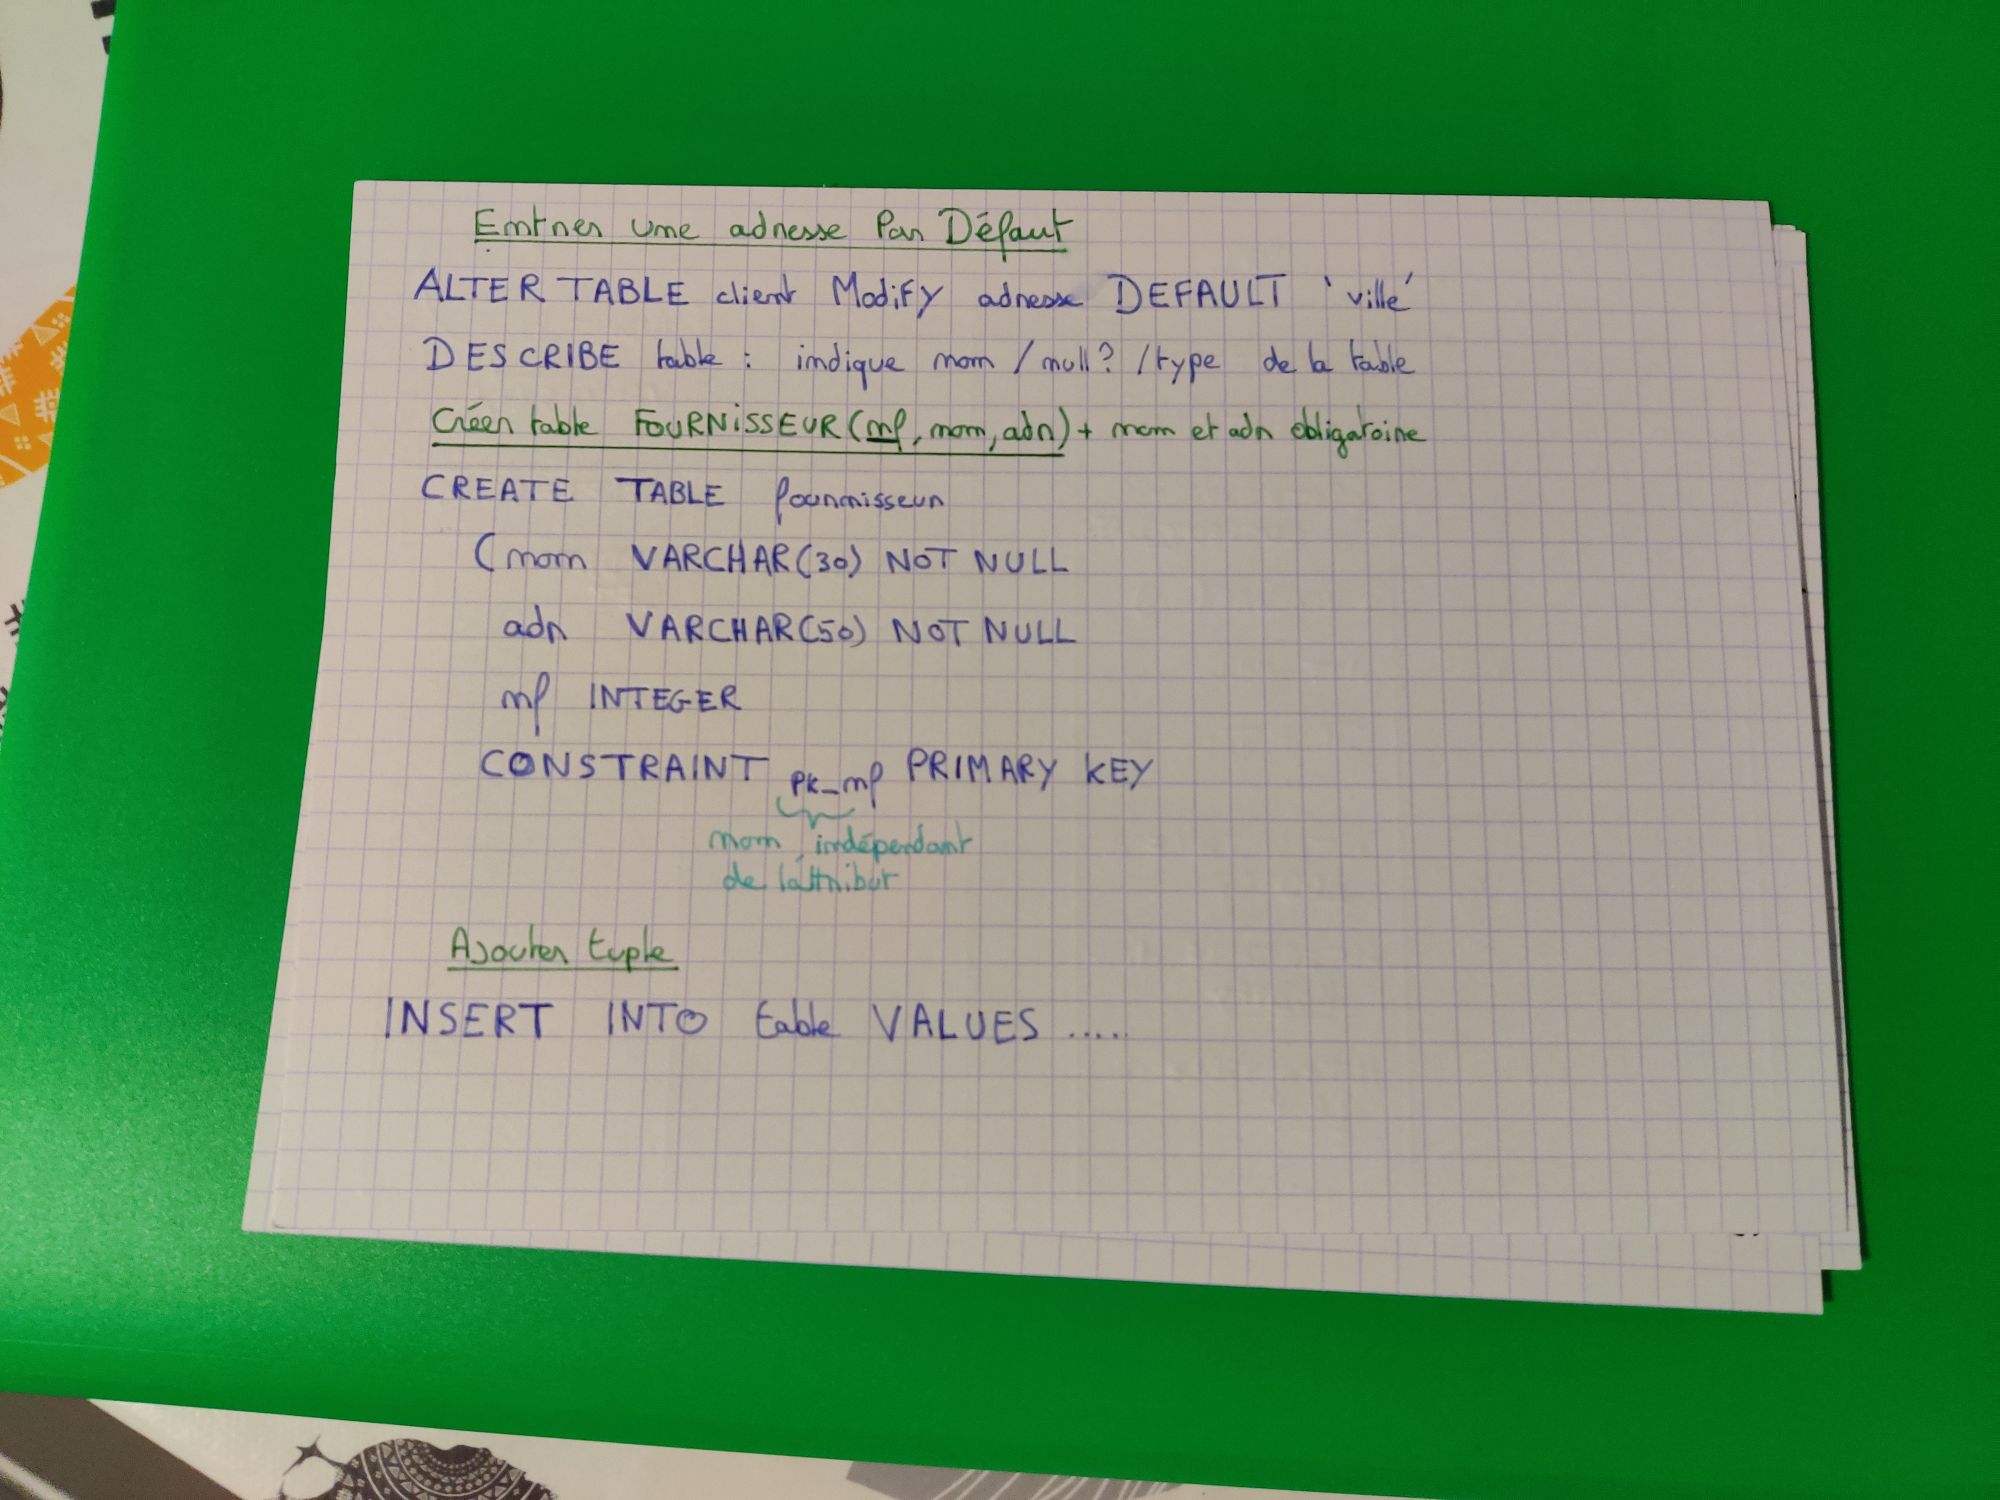 Entrer une adresse Par Défaut
ALTER TABLE client Modify adresse DEFAULT 'ville'
DESCRIBE table : indique nom / null? / type de la table
Créer table FOURNISSEUR (nf, nom, adr) + nom et adr obligatoire
CREATE TABLE fournisseur
(nom VARCHAR(30) NOT NULL
adr VARCHAR(50) NOT NULL
nf INTEGER
CONSTRAINT PK_nf PRIMARY KEY
nom indépendant
de l'attribut
Ajouter tuple
INSERT INTO table VALUES .....